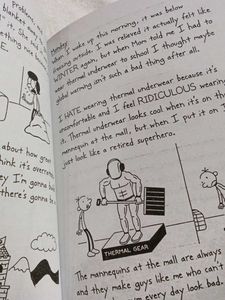 Problem
blanket
about how great
think it's overrated
hey I'm gonna
there's gonna be
Monday
When I woke up this morning, it was below
freezing outside. I was relieved it actually felt like
WINTER again, but when Mom told me I had to
wear thermal underwear to school I thought maybe
global warming isn't such a bad thing after all.
I HATE wearing thermal underwear because it's
uncomfortable and I feel RIDICULOUS wearing
it. Thermal underwear looks cool when it's on the
mannequin at the mall, but when I put it on I
just look like a retired superhero.
THERMAL GEAR
The mannequins at the mall are always
and they make guys like me who can't
every day look bad.